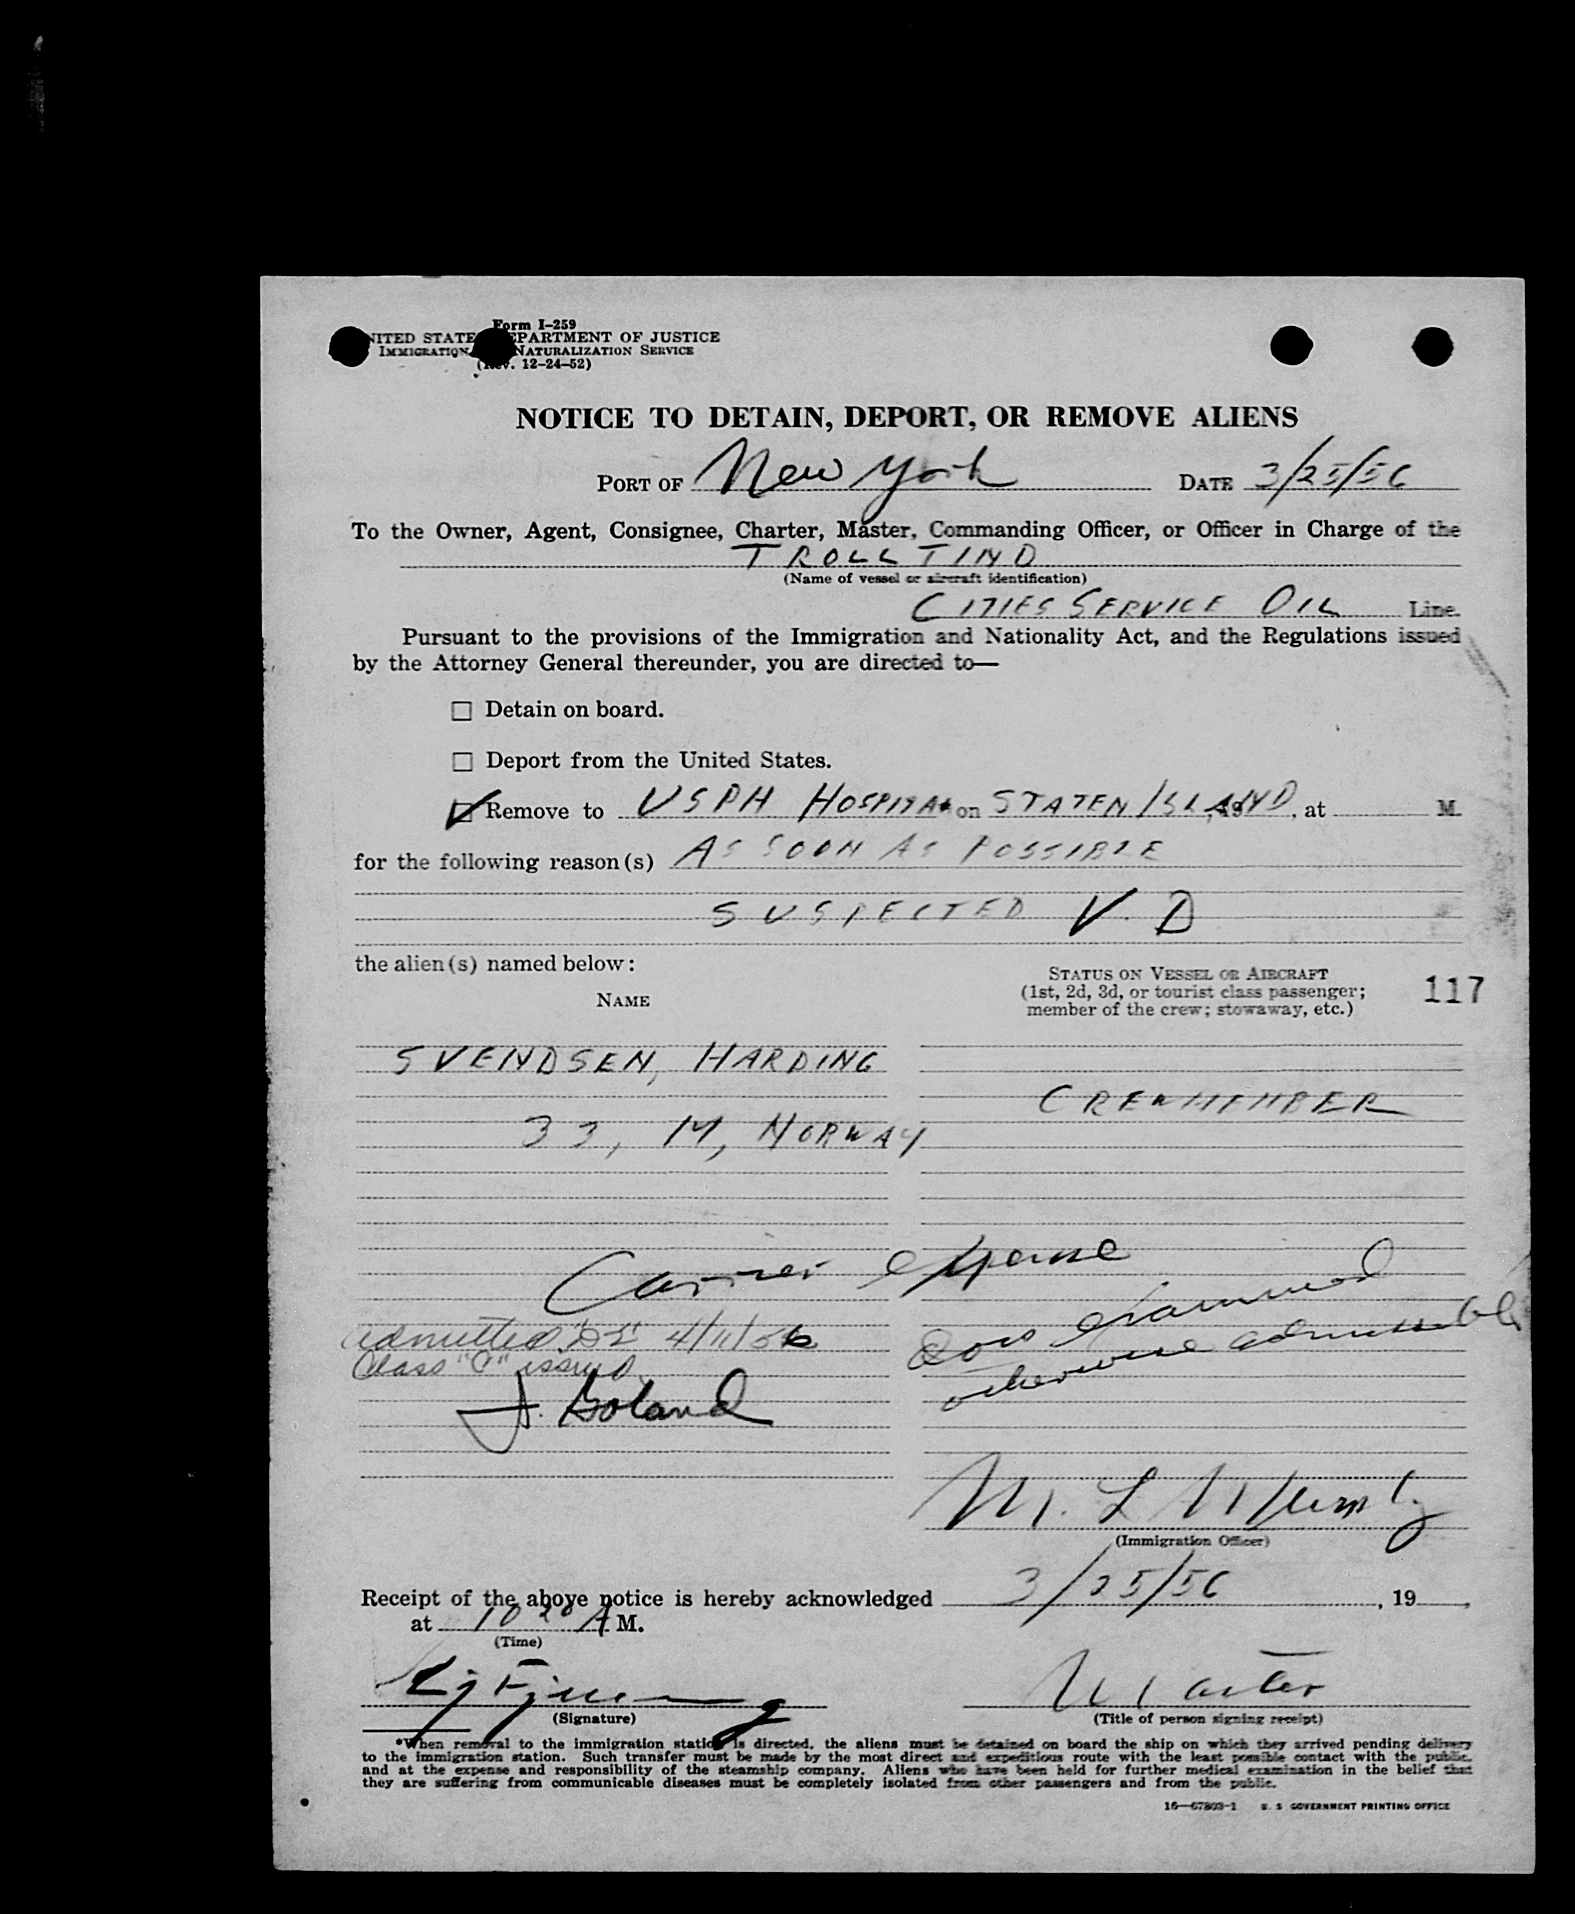 Form I-259
UNITED STATES DEPARTMENT OF JUSTICE
IMMIGRATION NATURALIZATION SERVICE
(Rev. 12-24-52)
NOTICE TO DETAIN, DEPORT, OR REMOVE ALIENS
PORT OF New York DATE 3/25/56
To the Owner, Agent, Consignee, Charter, Master, Commanding Officer, or Officer in Charge of the
TROLLTIND
(Name of vessel or aircraft identification)
CITIES SERVICE OIL Line.
Pursuant to the provisions of the Immigration and Nationality Act, and the Regulations issued
by the Attorney General thereunder, you are directed to—
☐ Detain on board.
☐ Deport from the United States.
☑ Remove to USPH HOSPITAL on STATEN ISLAND, 19, at M.
for the following reason(s) AS SOON AS POSSIBLE
SUSPECTED V.D
the alien(s) named below:
STATUS ON VESSEL OR AIRCRAFT
(1st, 2d, 3d, or tourist class passenger;
member of the crew; stowaway, etc.)
117
NAME
SVENDSEN, HARDING
CREWMEMBER
33, M, NORWAY
Carrier expense
Docs examined
otherwise admissable
admitted "D1" 4/11/56
Class "C" issued
J. Boland
M. L. Murphy
(Immigration Officer)
Receipt of the above notice is hereby acknowledged 3/25/56, 19,
at 10 20 A M.
(Time)
Master
(Signature)
(Title of person signing receipt)
*When removal to the immigration station is directed, the aliens must be detained on board the ship on which they arrived pending delivery
to the immigration station. Such transfer must be made by the most direct and expeditious route with the least possible contact with the public,
and at the expense and responsibility of the steamship company. Aliens who have been held for further medical examination in the belief that
they are suffering from communicable diseases must be completely isolated from other passengers and from the public.
16—67803-1 U. S. GOVERNMENT PRINTING OFFICE